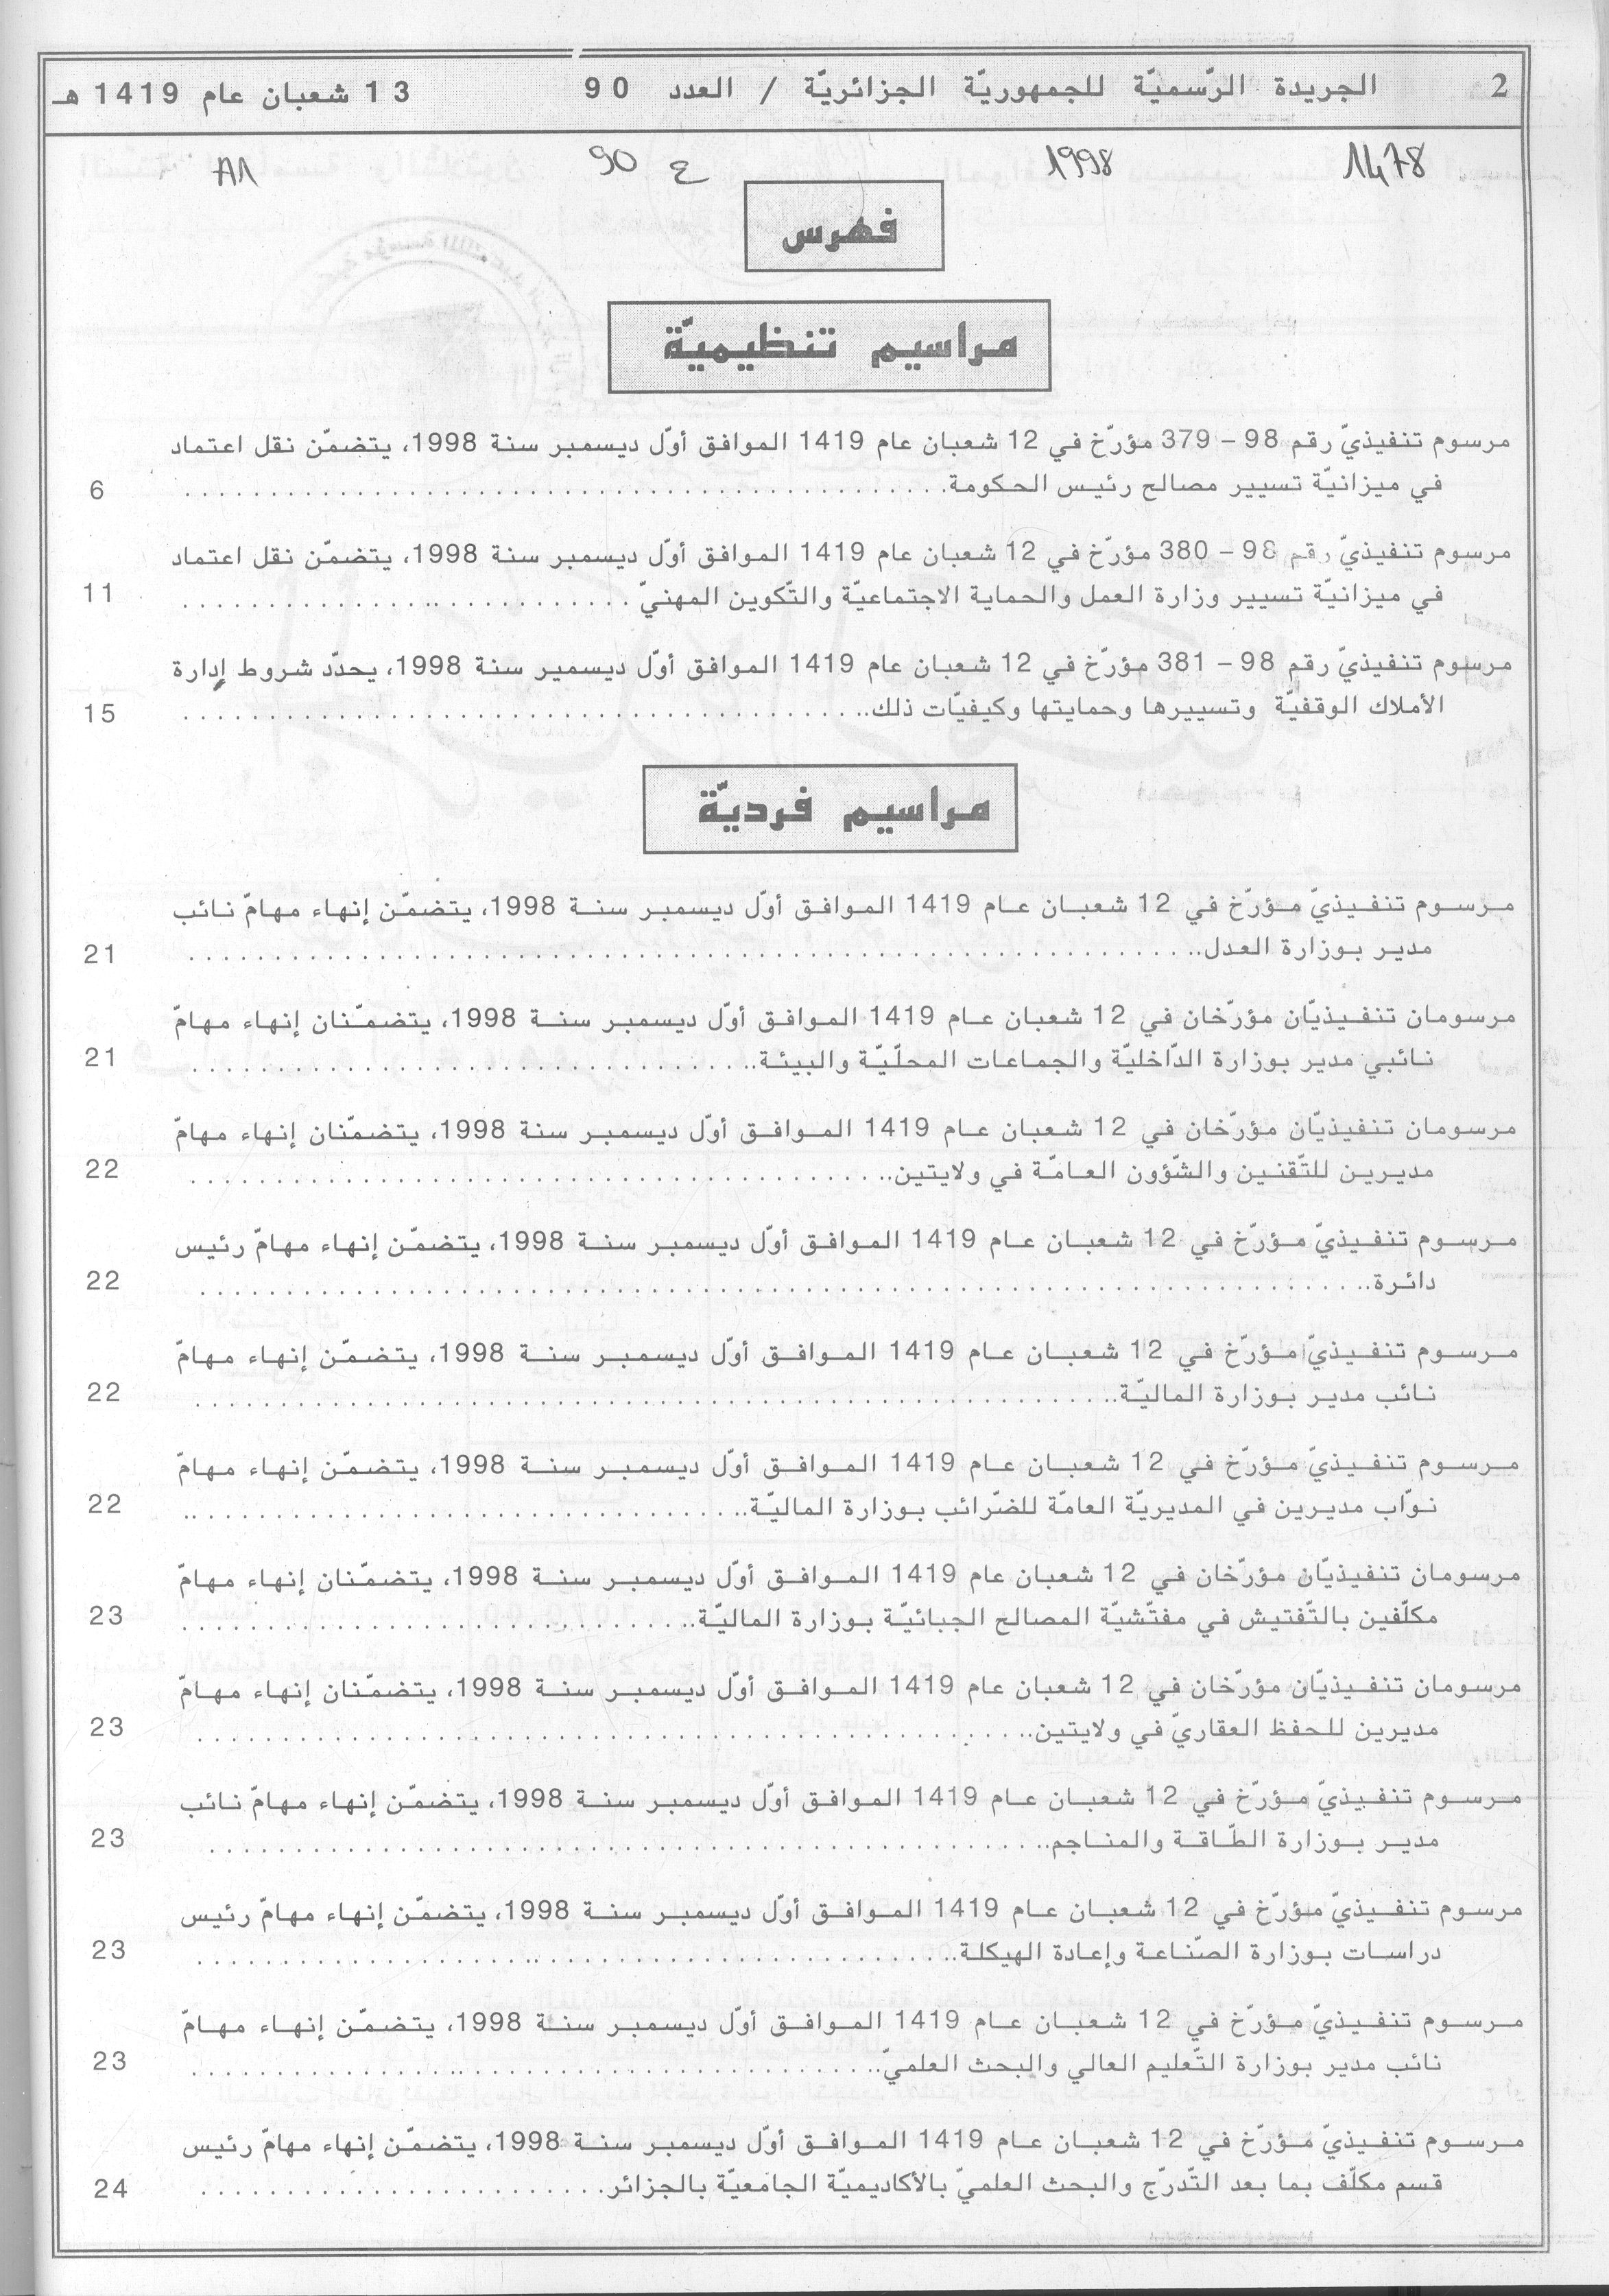 2 الجريدة الرّسميّة للجمهوريّة الجزائريّة / العدد 90 13 شعبان عام 1419 هـ
1478 1998 ع 90 A1
فهرس
مراسيم تنظيميّة
مرسوم تنفيذيّ رقم 98 – 379 مؤرّخ في 12 شعبان عام 1419 الموافق أوّل ديسمبر سنة 1998، يتضمّن نقل اعتماد
في ميزانيّة تسيير مصالح رئيس الحكومة 6
مرسوم تنفيذيّ رقم 98 – 380 مؤرّخ في 12 شعبان عام 1419 الموافق أوّل ديسمبر سنة 1998، يتضمّن نقل اعتماد
في ميزانيّة تسيير وزارة العمل والحماية الاجتماعيّة والتّكوين المهنيّ 11
مرسوم تنفيذيّ رقم 98 – 381 مؤرّخ في 12 شعبان عام 1419 الموافق أوّل ديسمبر سنة 1998، يحدّد شروط إدارة
الأملاك الوقفيّة وتسييرها وحمايتها وكيفيّات ذلك 15
مراسيم فرديّة
مرسوم تنفيذيّ مؤرّخ في 12 شعبان عام 1419 الموافق أوّل ديسمبر سنة 1998، يتضمّن إنهاء مهامّ نائب
مدير بوزارة العدل 21
مرسومان تنفيذيّان مؤرّخان في 12 شعبان عام 1419 الموافق أوّل ديسمبر سنة 1998، يتضمّنان إنهاء مهامّ
نائبي مدير بوزارة الدّاخليّة والجماعات المحلّيّة والبيئة 21
مرسومان تنفيذيّان مؤرّخان في 12 شعبان عام 1419 الموافق أوّل ديسمبر سنة 1998، يتضمّنان إنهاء مهامّ
مديرين للتّقنين والشّؤون العامّة في ولايتين 22
مرسوم تنفيذيّ مؤرّخ في 12 شعبان عام 1419 الموافق أوّل ديسمبر سنة 1998، يتضمّن إنهاء مهامّ رئيس
دائرة 22
مرسوم تنفيذيّ مؤرّخ في 12 شعبان عام 1419 الموافق أوّل ديسمبر سنة 1998، يتضمّن إنهاء مهامّ
نائب مدير بوزارة الماليّة 22
مرسوم تنفيذيّ مؤرّخ في 12 شعبان عام 1419 الموافق أوّل ديسمبر سنة 1998، يتضمّن إنهاء مهامّ
نوّاب مديرين في المديريّة العامّة للضّرائب بوزارة الماليّة 22
مرسومان تنفيذيّان مؤرّخان في 12 شعبان عام 1419 الموافق أوّل ديسمبر سنة 1998، يتضمّنان إنهاء مهامّ
مكلّفين بالتّفتيش في مفتّشيّة المصالح الجبائيّة بوزارة الماليّة 23
مرسومان تنفيذيّان مؤرّخان في 12 شعبان عام 1419 الموافق أوّل ديسمبر سنة 1998، يتضمّنان إنهاء مهامّ
مديرين للحفظ العقاريّ في ولايتين 23
مرسوم تنفيذيّ مؤرّخ في 12 شعبان عام 1419 الموافق أوّل ديسمبر سنة 1998، يتضمّن إنهاء مهامّ نائب
مدير بوزارة الطّاقة والمناجم 23
مرسوم تنفيذيّ مؤرّخ في 12 شعبان عام 1419 الموافق أوّل ديسمبر سنة 1998، يتضمّن إنهاء مهامّ رئيس
دراسات بوزارة الصّناعة وإعادة الهيكلة 23
مرسوم تنفيذيّ مؤرّخ في 12 شعبان عام 1419 الموافق أوّل ديسمبر سنة 1998، يتضمّن إنهاء مهامّ
نائب مدير بوزارة التّعليم العالي والبحث العلميّ 23
مرسوم تنفيذيّ مؤرّخ في 12 شعبان عام 1419 الموافق أوّل ديسمبر سنة 1998، يتضمّن إنهاء مهامّ رئيس
قسم مكلّف بما بعد التّدرّج والبحث العلميّ بالأكاديميّة الجامعيّة بالجزائر 24